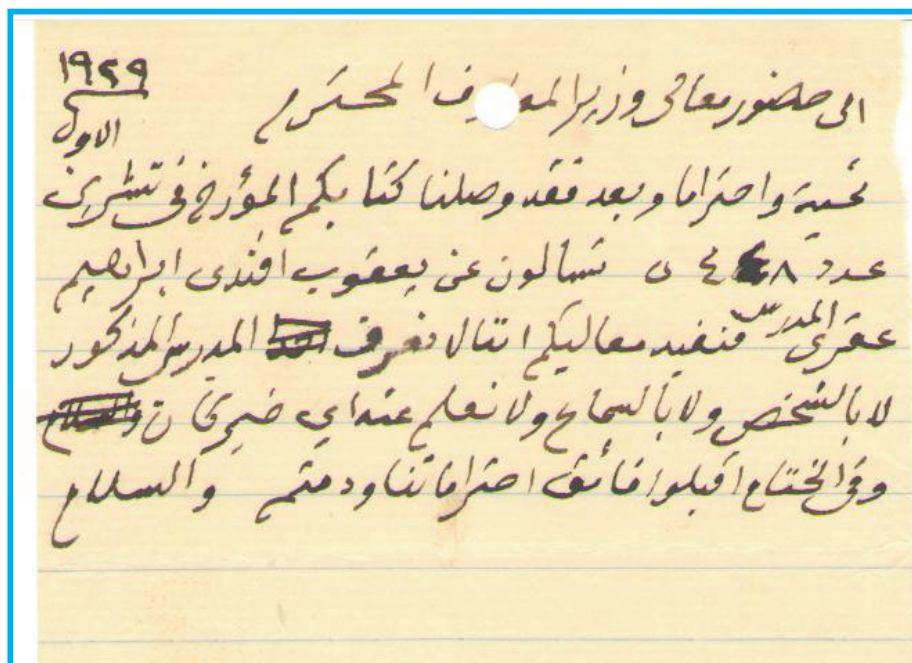 ١٩٢٩
الى حضور معالى وزير المعارف المحترم
الاول
تحية واحتراما وبعد فقد وصلنا كتابكم المؤرخ فى تشرين
عدد ٤ ٨ تسألون عن يعقوب افندى ابراهيم
عقرى المدرس فنفيد معاليكم اننا لا نعرف المدرس المذكور
لا بالشخص ولا بالسماع ولا نعلم عنه اي خبر كان
وفى الختام اقبلوا فائق احتراماتنا ودمتم والسلام